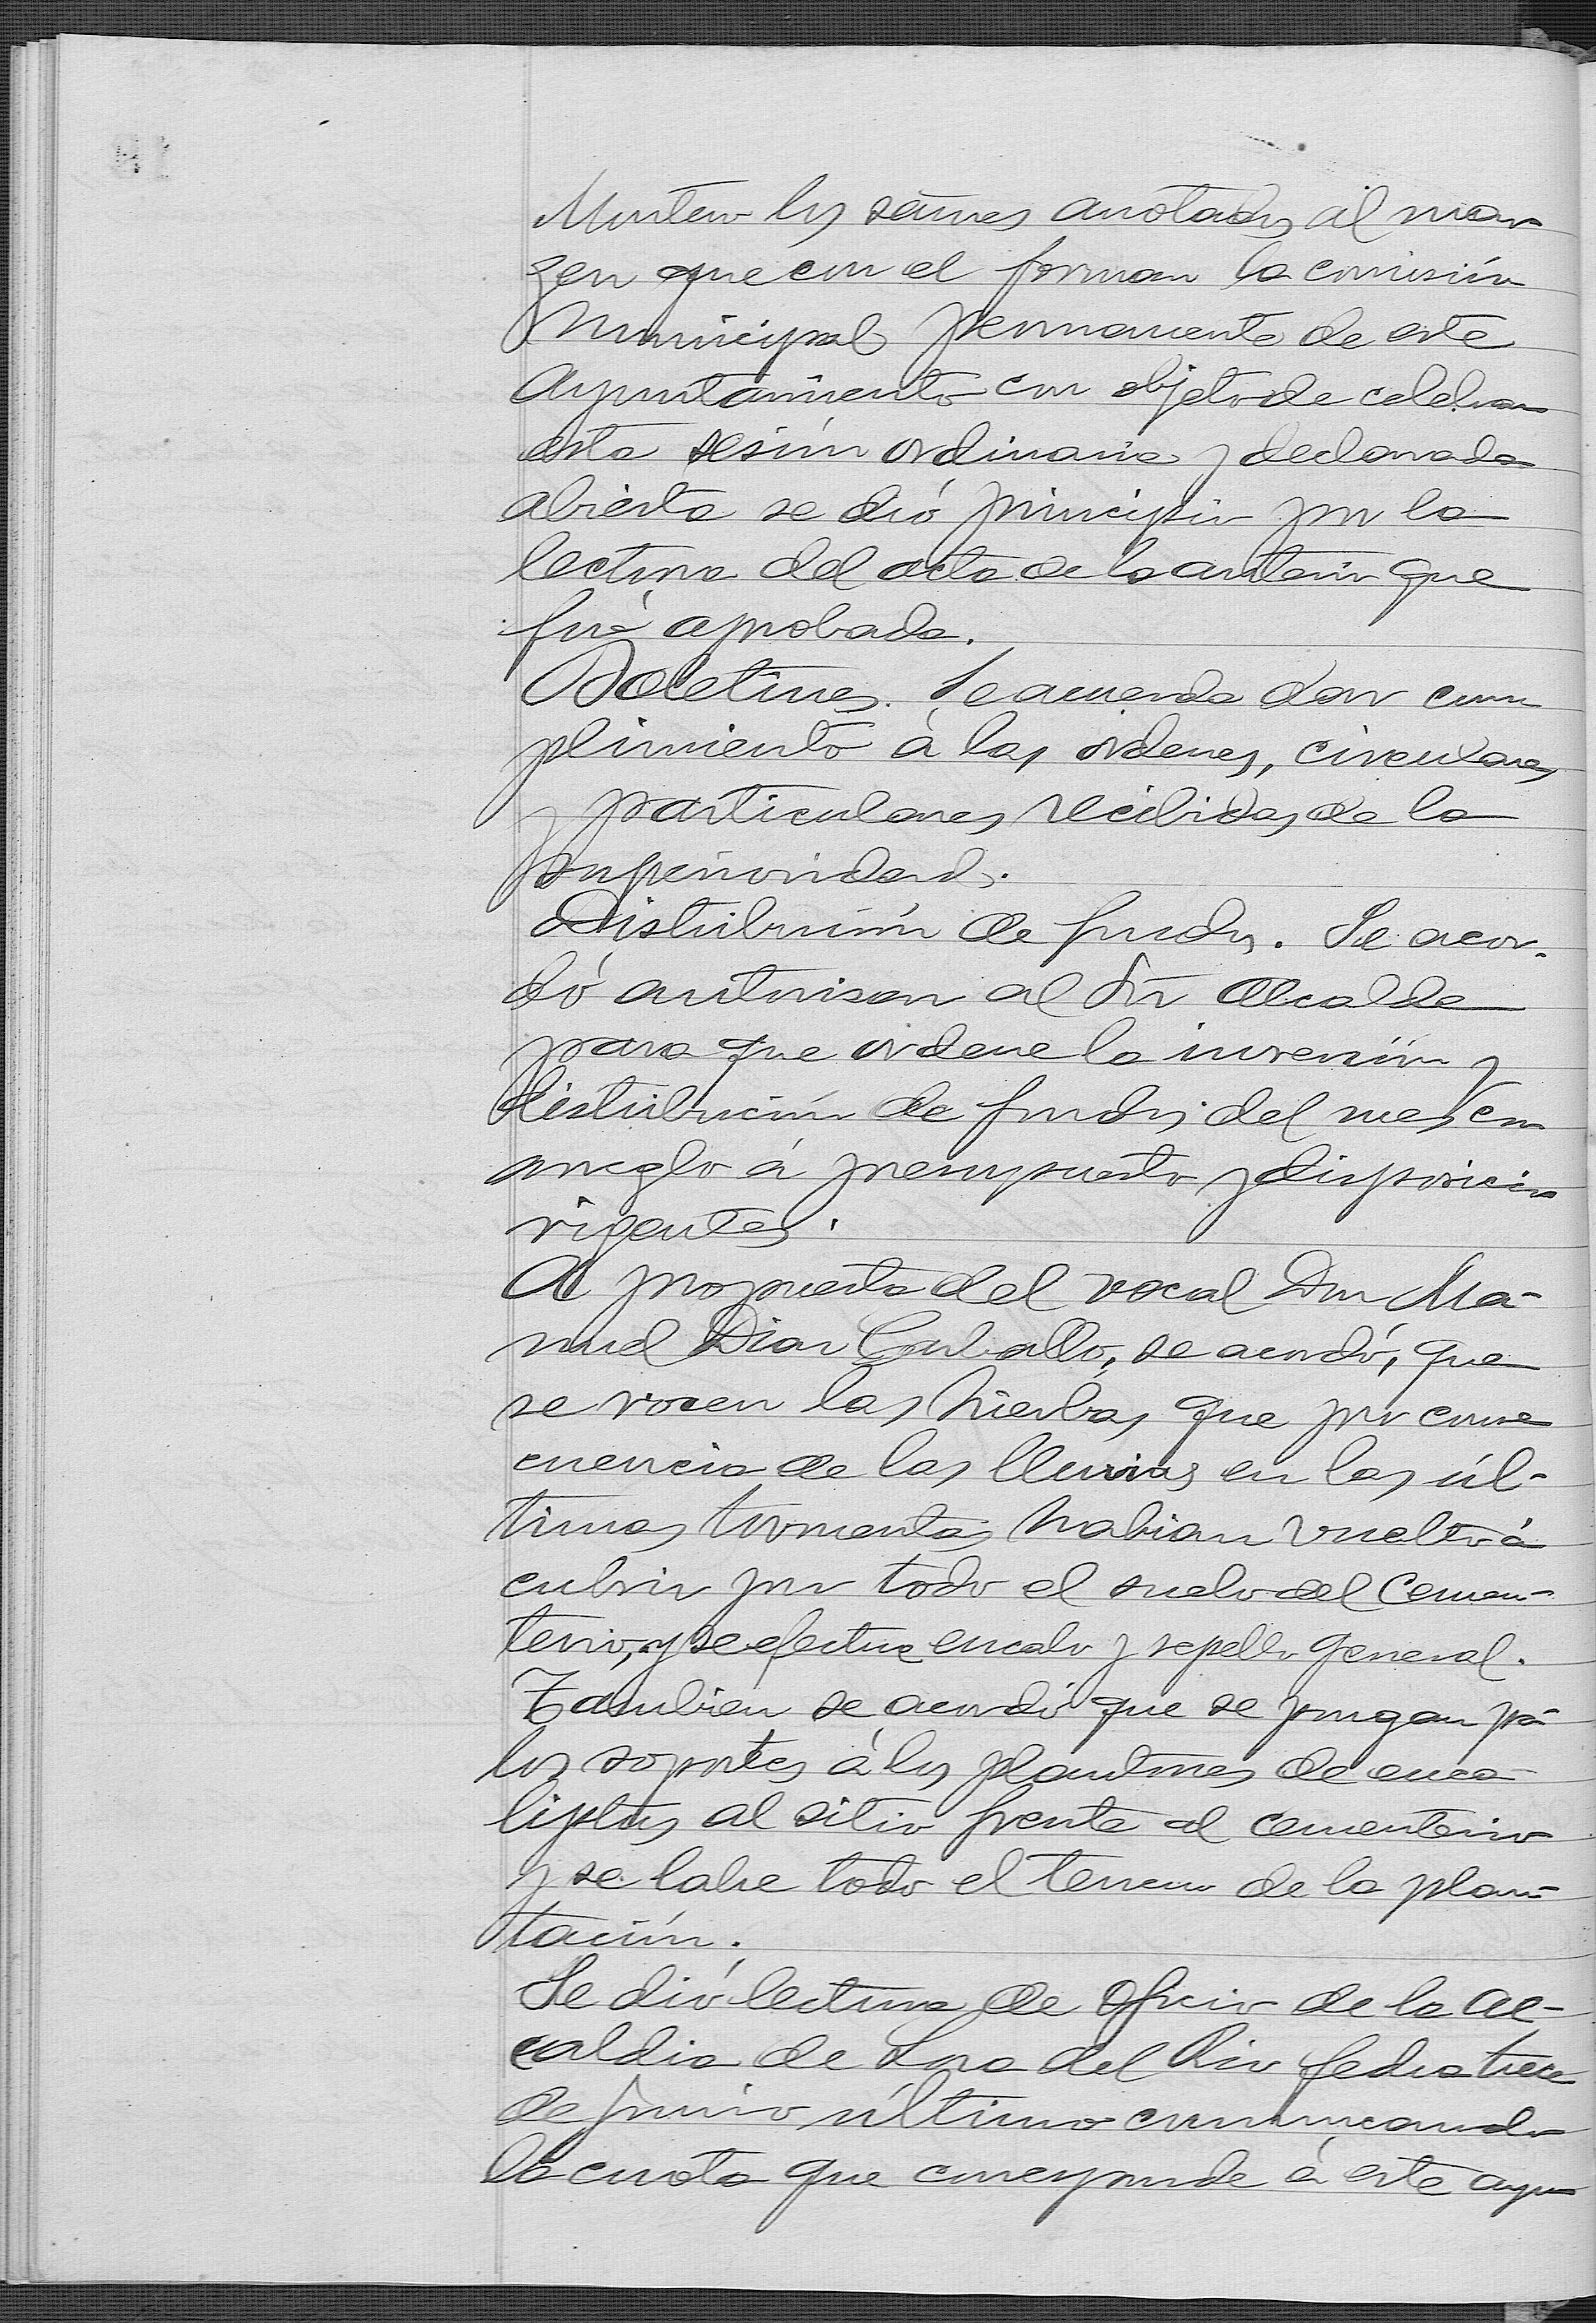 Montero los señores anotados al mar
gen que con el forman la comisión
Municipal permanente de este
Ayuntamiento con objeto de celebrar
esta sesión ordinaria y declarada
abierta se dió principio por la
lectura del acta de la anterior que
fué aprobada.
Boletines. Se acuerda dar cum
plimiento à las ordenes, circulares
y particulares recibidas de la
superioridad.
Distribución de fondos. Se acor-
dó autorisar al Sr Alcalde
para que ordene la inversión y
distribución de fondos del mes con
arreglo á presupuesto y disposicion
vigentes.
A propuesta del vocal Don Ma-
nuel Diar Carballo, se acordó, que
se rocen las hierbas que por conse
cuencia de las lluvias en las úl-
timas tormentas habian vuelto á
cubrir por todo el suelo del Cemen-
terio, y se efectue encalo y repello general.
Tambien se acordó que se pongan pa-
los soportes à los plantones de euca-
liptus al sitio frente al cementerio
y se labre todo el terreno de la plan-
tación.
Se dió lectura de oficio de la Al-
caldia de Lora del Rio fecha trece
de junio último comunicando
la cuota que corresponde á este ayun